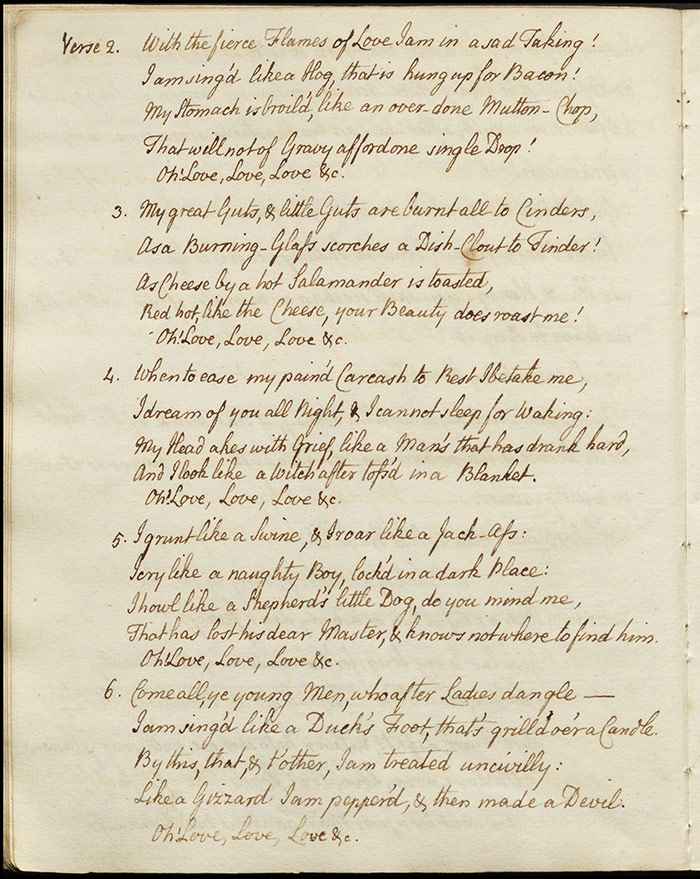 Verse 2. With the fierce Flames of Love I am in a sad Taking!
I am sing'd like a Hog, that is hung up for Bacon!
My Stomach is broil'd, like an over-done Mutton-Chop,
That will not of Gravy afford one single Drop!
Oh! Love, Love, Love &c.
3. My great Guts, & little Guts are burnt all to Cinders,
As a Burning-Glaſs scorches a Dish-Clout to Tinder!
As Cheese by a hot Salamander is toasted,
Red hot, like the Cheese, your Beauty does roast me!
Oh! Love, Love, Love &c.
4. When to ease my pain'd Carcash to Rest I betake me,
I dream of you all Night, & I cannot sleep for Waking:
My Head akes with Grief, like a Man's that has drank hard,
And I look like a Witch after toſs'd in a Blanket.
Oh! Love, Love, Love &c.
5. I grunt like a Swine, & I roar like a Jack-Aſs:
I cry like a naughty Boy, lock'd in a dark Place:
I howl like a Shepherd's little Dog, do you mind me,
That has lost his dear Master, & knows not where to find him.
Oh! Love, Love, Love &c.
6. Come all, ye young Men, who after Ladies dangle —
I am sing'd like a Duck's Foot, that's grill'd o'er a Candle.
By this, that, & t'other, I am treated uncivilly:
Like a Gizzard I am pepper'd, & then made a Devil.
Oh! Love, Love, Love &c.